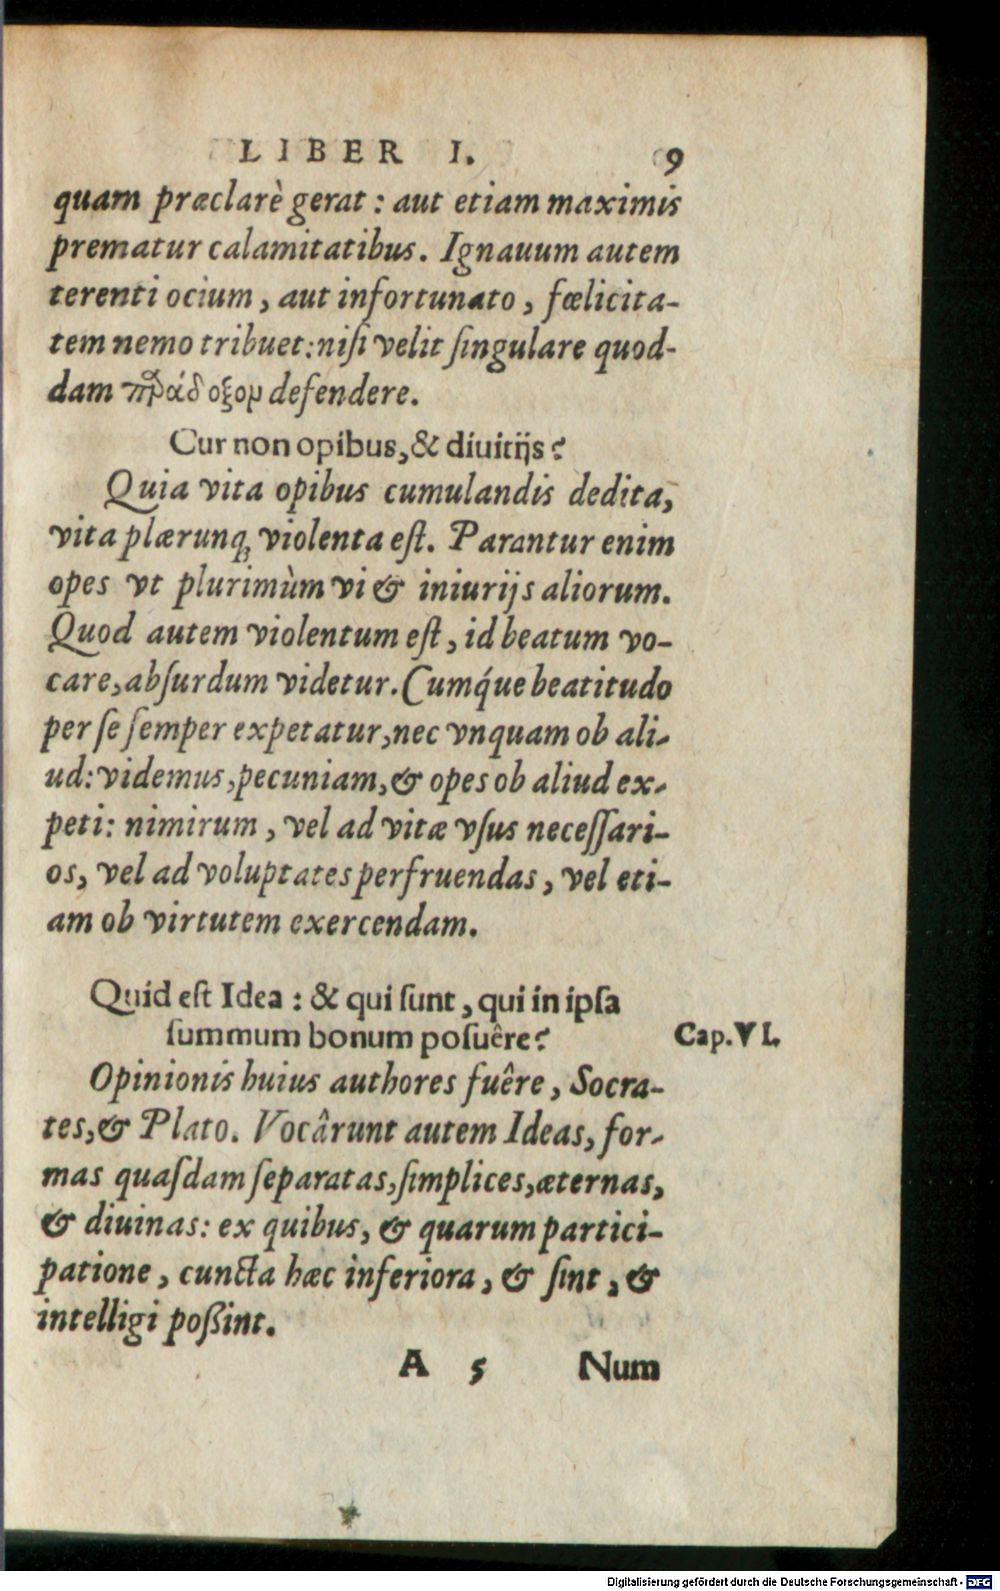 LIBER I. 9
quam præclarè gerat : aut etiam maximis
prematur calamitatibus. Ignauum autem
terenti ocium, aut infortunato, fœlicita-
tem nemo tribuet: nisi velit ſingulare quod-
dam παράδοξον defendere.
Cur non opibus, & diuitijs?
Quia vita opibus cumulandis dedita,
vita plærunq; violenta eſt. Parantur enim
opes vt plurimùm vi & iniurijs aliorum.
Quod autem violentum eſt, id beatum vo-
care, abſurdum videtur. Cumq́ue beatitudo
per ſe ſemper expetatur, nec vnquam ob ali-
ud: videmus, pecuniam, & opes ob aliud ex-
peti: nimirum, vel ad vitæ vſus neceſſari-
os, vel ad voluptates perfruendas, vel eti-
am ob virtutem exercendam.
Quid eſt Idea : & qui ſunt, qui in ipſa
ſummum bonum poſuêre?
Cap. VI.
Opinionis huius authores fuêre, Socra-
tes, & Plato. Vocârunt autem Ideas, for-
mas quaſdam ſeparatas, ſimplices, æternas,
& diuinas: ex quibus, & quarum partici-
patione, cuncta hæc inferiora, & ſint, &
intelligi poßint.
A 5 Num
Digitalisierung gefördert durch die Deutsche Forschungsgemeinschaft - DFG